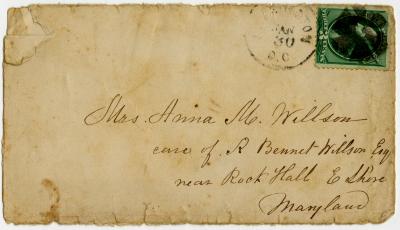 30
D.C.
Mrs. Anna M. Willson
care of R Bennet Willson Esq
near Rock Hall E Shore
Maryland